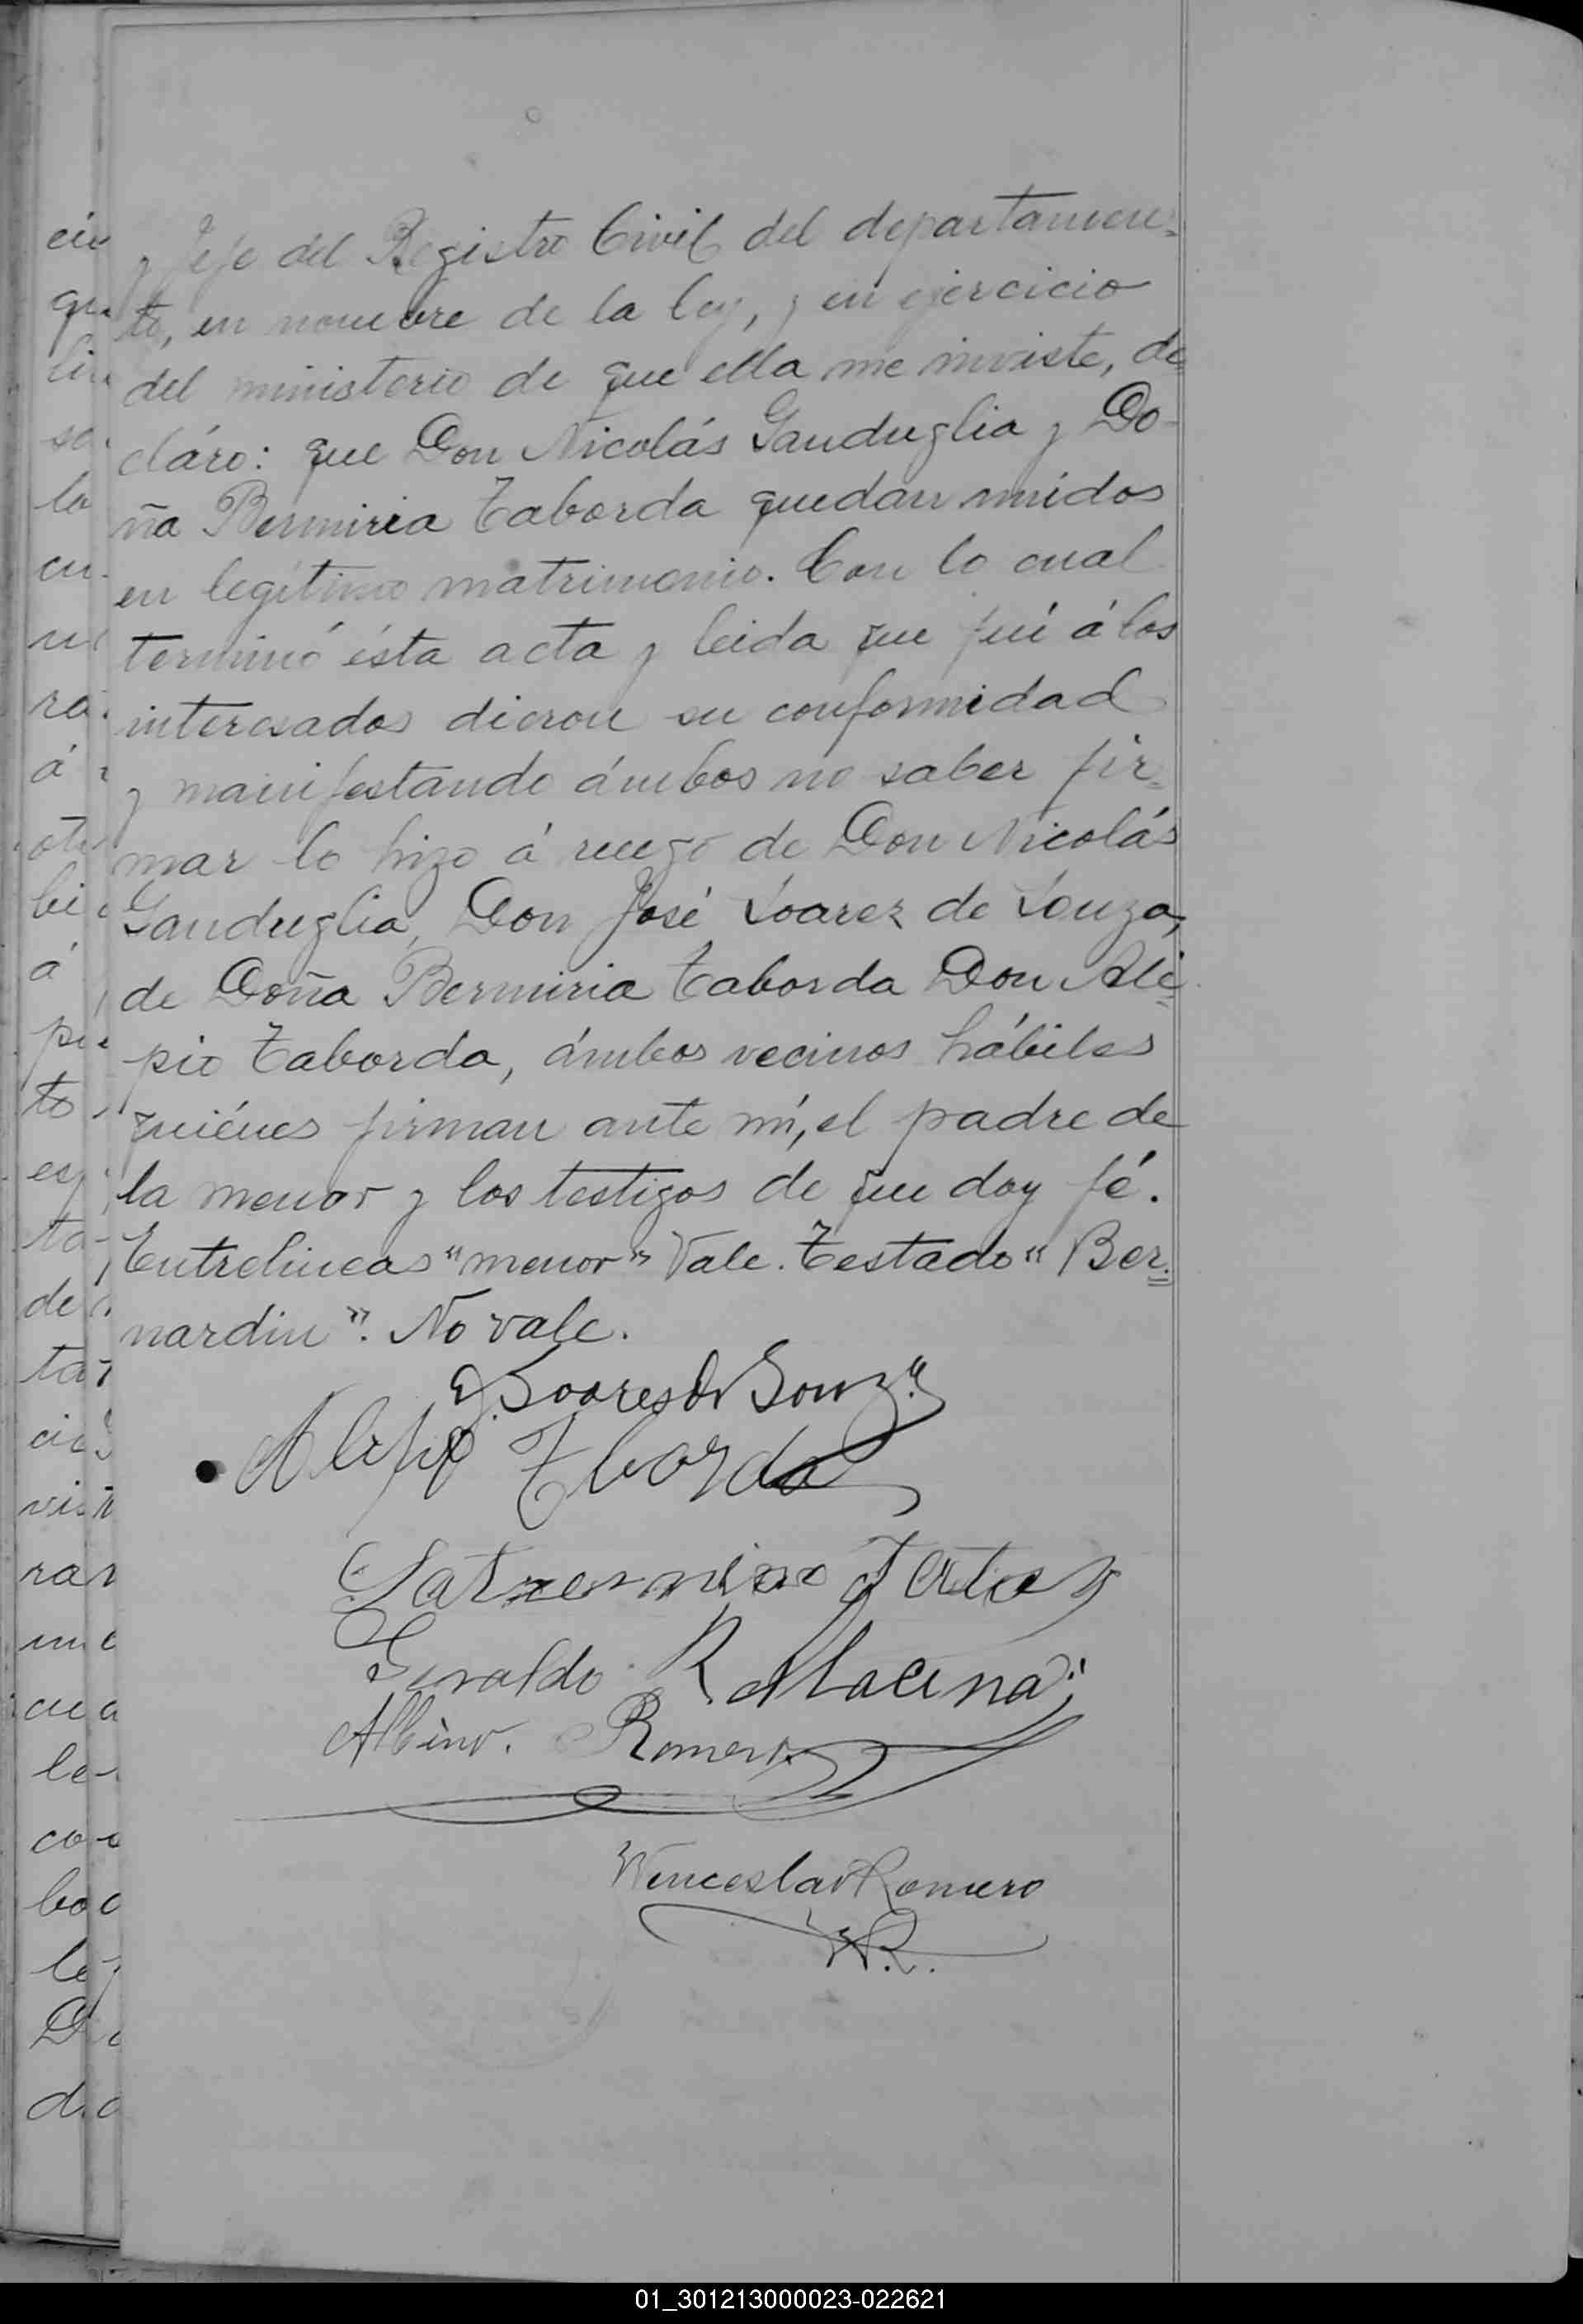 y Jefe del Registro Civil del departamen=
to, en nombre de la ley, y en ejercicio
del ministerio de que ella me inviste, de=
cláro: que Don Nicolás Ganduglia y Do-
ña Bermiria Taborda quedan unidos
en legítimo matrimonio. Con lo cual
terminó ésta acta y leida que fué á los
interesados dieron su conformidad
y manifestando ámbos no saber fir=
mar lo hizo á ruego de Don Nicolás
Ganduglia, Don José Soarez de Souza,
de Doña Bermiria Taborda Don Ali=
pio Taborda, ámbos vecinos hábiles
quiénes firman ante mí, el padre de
la menor y los testigos de que doy fé.
Entrelineas "menor" Vale. Testado "Ber=
nardin". No vale.
J Soares d Souza
Alipio Tborda
Saturnino
Geraldo R
Albino. Romero
Wenceslao Romero
W.R.
01_301213000023-022621